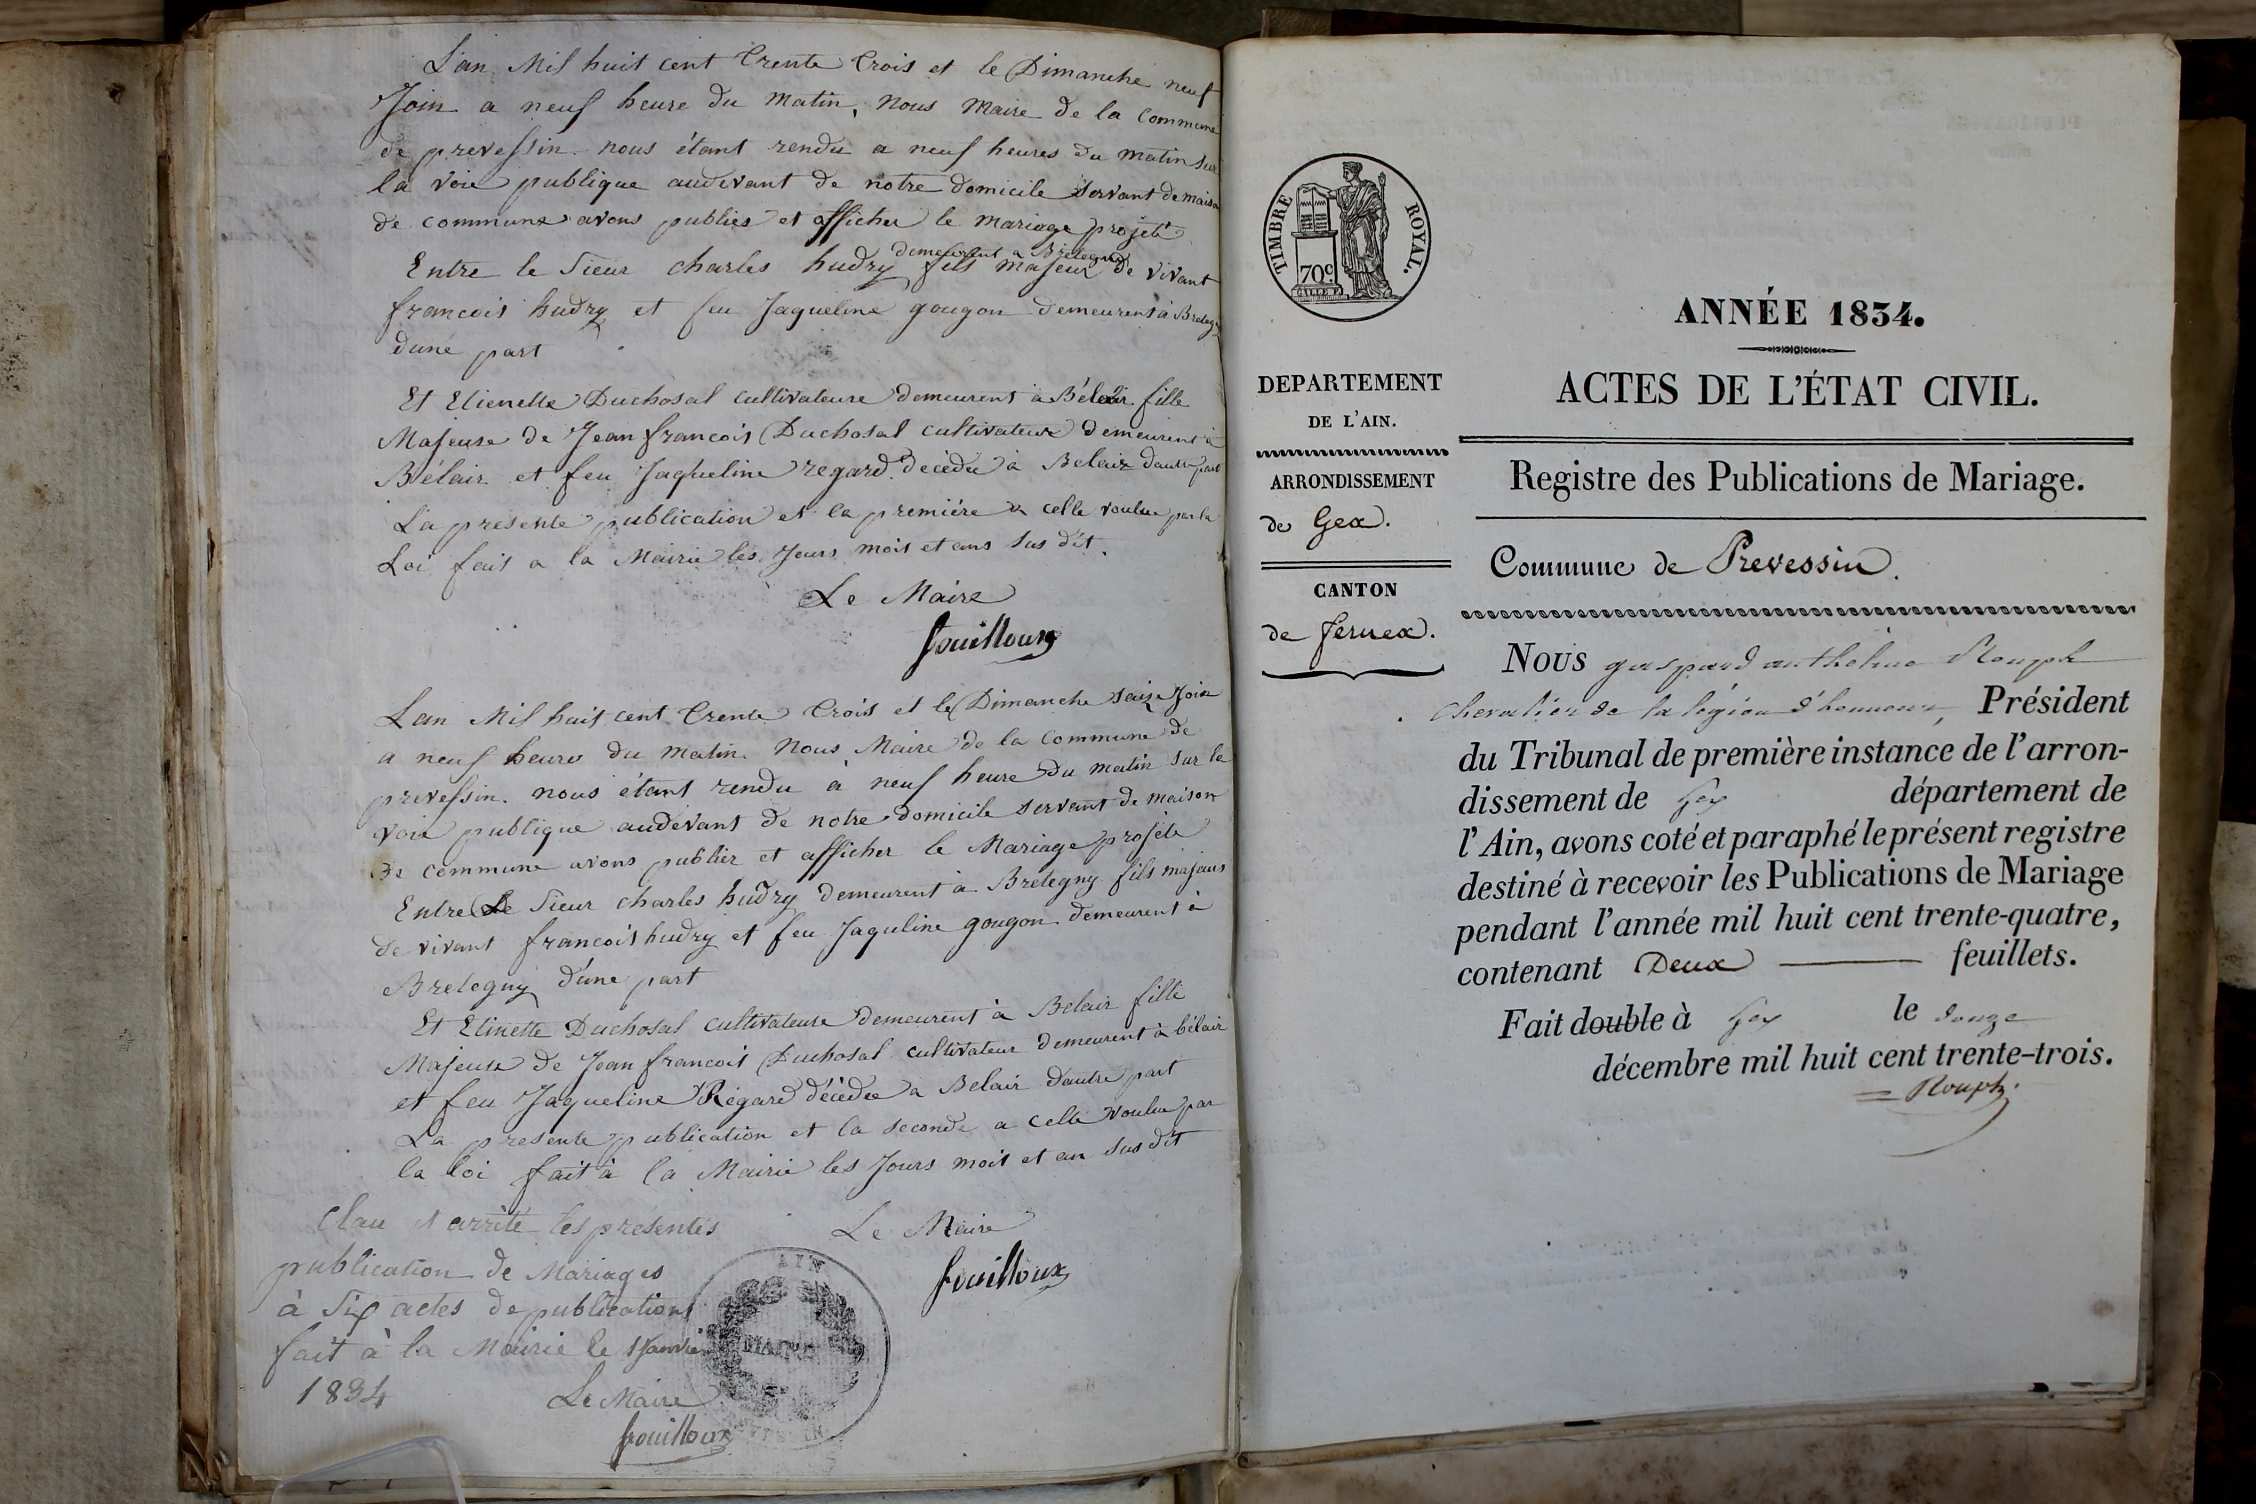 L'an Mil huit cent trente trois et le Dimanche neuf
Join a neuf heure du matin, nous Maire de la Commune
de prevessin. nous étant rendu a neuf heures du matin sur
la voie publique audevant de notre domicile servant de maison
de commune avons publies et afficher le mariage projeté
demeurent a Bretegny
Entre le Sieur charles hudry fils majeur de vivant
francois hudry et feu Jaqueline gougon demeurent à Bretegny
dune part
Et Etienette Duchosal cultivateure demeurent à Bélair fille
Majeuse de Jean francois Duchosal cultivateur demeurent à
Bélair et feu Jaqueline regard decedee à Belair dautre part
La presente publication et la premiére a celle voulue par la
Loi fait a la Mairie les Jours mois et ans sus dit.
Le Maire
fouilloux
Lan Mil huit cent trente trois et le Dimanche saize Join
a neuf heure du matin. Nous Maire de la commune de
prevessin. nous étant rendu à neuf heure du matin sur la
voie publique audevant de notre domicile servant de maison
de commune avons publier et afficher le Mariage projeté
Entre Le Sieur charles hudry demeurent à Bretegny fils majeur
de vivant francois hudry et feu Jaquline gougon demeurent à
Bretegny d'une part
Et Etinette Duchosal cultivateure demeurent à Belair fille
Majeuse de Jean francois Duchosal cultivateur demeurent à bélair
et feu Jaqueline Régard décédee a Belair dautre part
La presente publication et la seconde a celle voulue par
la loi fait à la Mairie les Jours mois et an sus dit
Le Maire
fouilloux
Clau et arrêté les présentes
publication de Mariages
à Six actes de publications
fait à la Mairie le 1 Janvier
1834
Le Maire
fouilloux
AIN
MAIRIE
TIMBRE ROYAL.
70c
ANNÉE 1834.
ACTES DE L'ÉTAT CIVIL.
DEPARTEMENT
DE L'AIN.
ARRONDISSEMENT
de Gex.
CANTON
de fernex.
Registre des Publications de Mariage.
Commune de Prevessin.
Nous gaspard anthelme Rouph
chevalier de la légion d'honneur, Président
du Tribunal de première instance de l'arron-
dissement de Gex département de
l'Ain, avons coté et paraphé le présent registre
destiné à recevoir les Publications de Mariage
pendant l'année mil huit cent trente-quatre,
contenant Deux feuillets.
Fait double à Gex le douze
décembre mil huit cent trente-trois.
Rouph